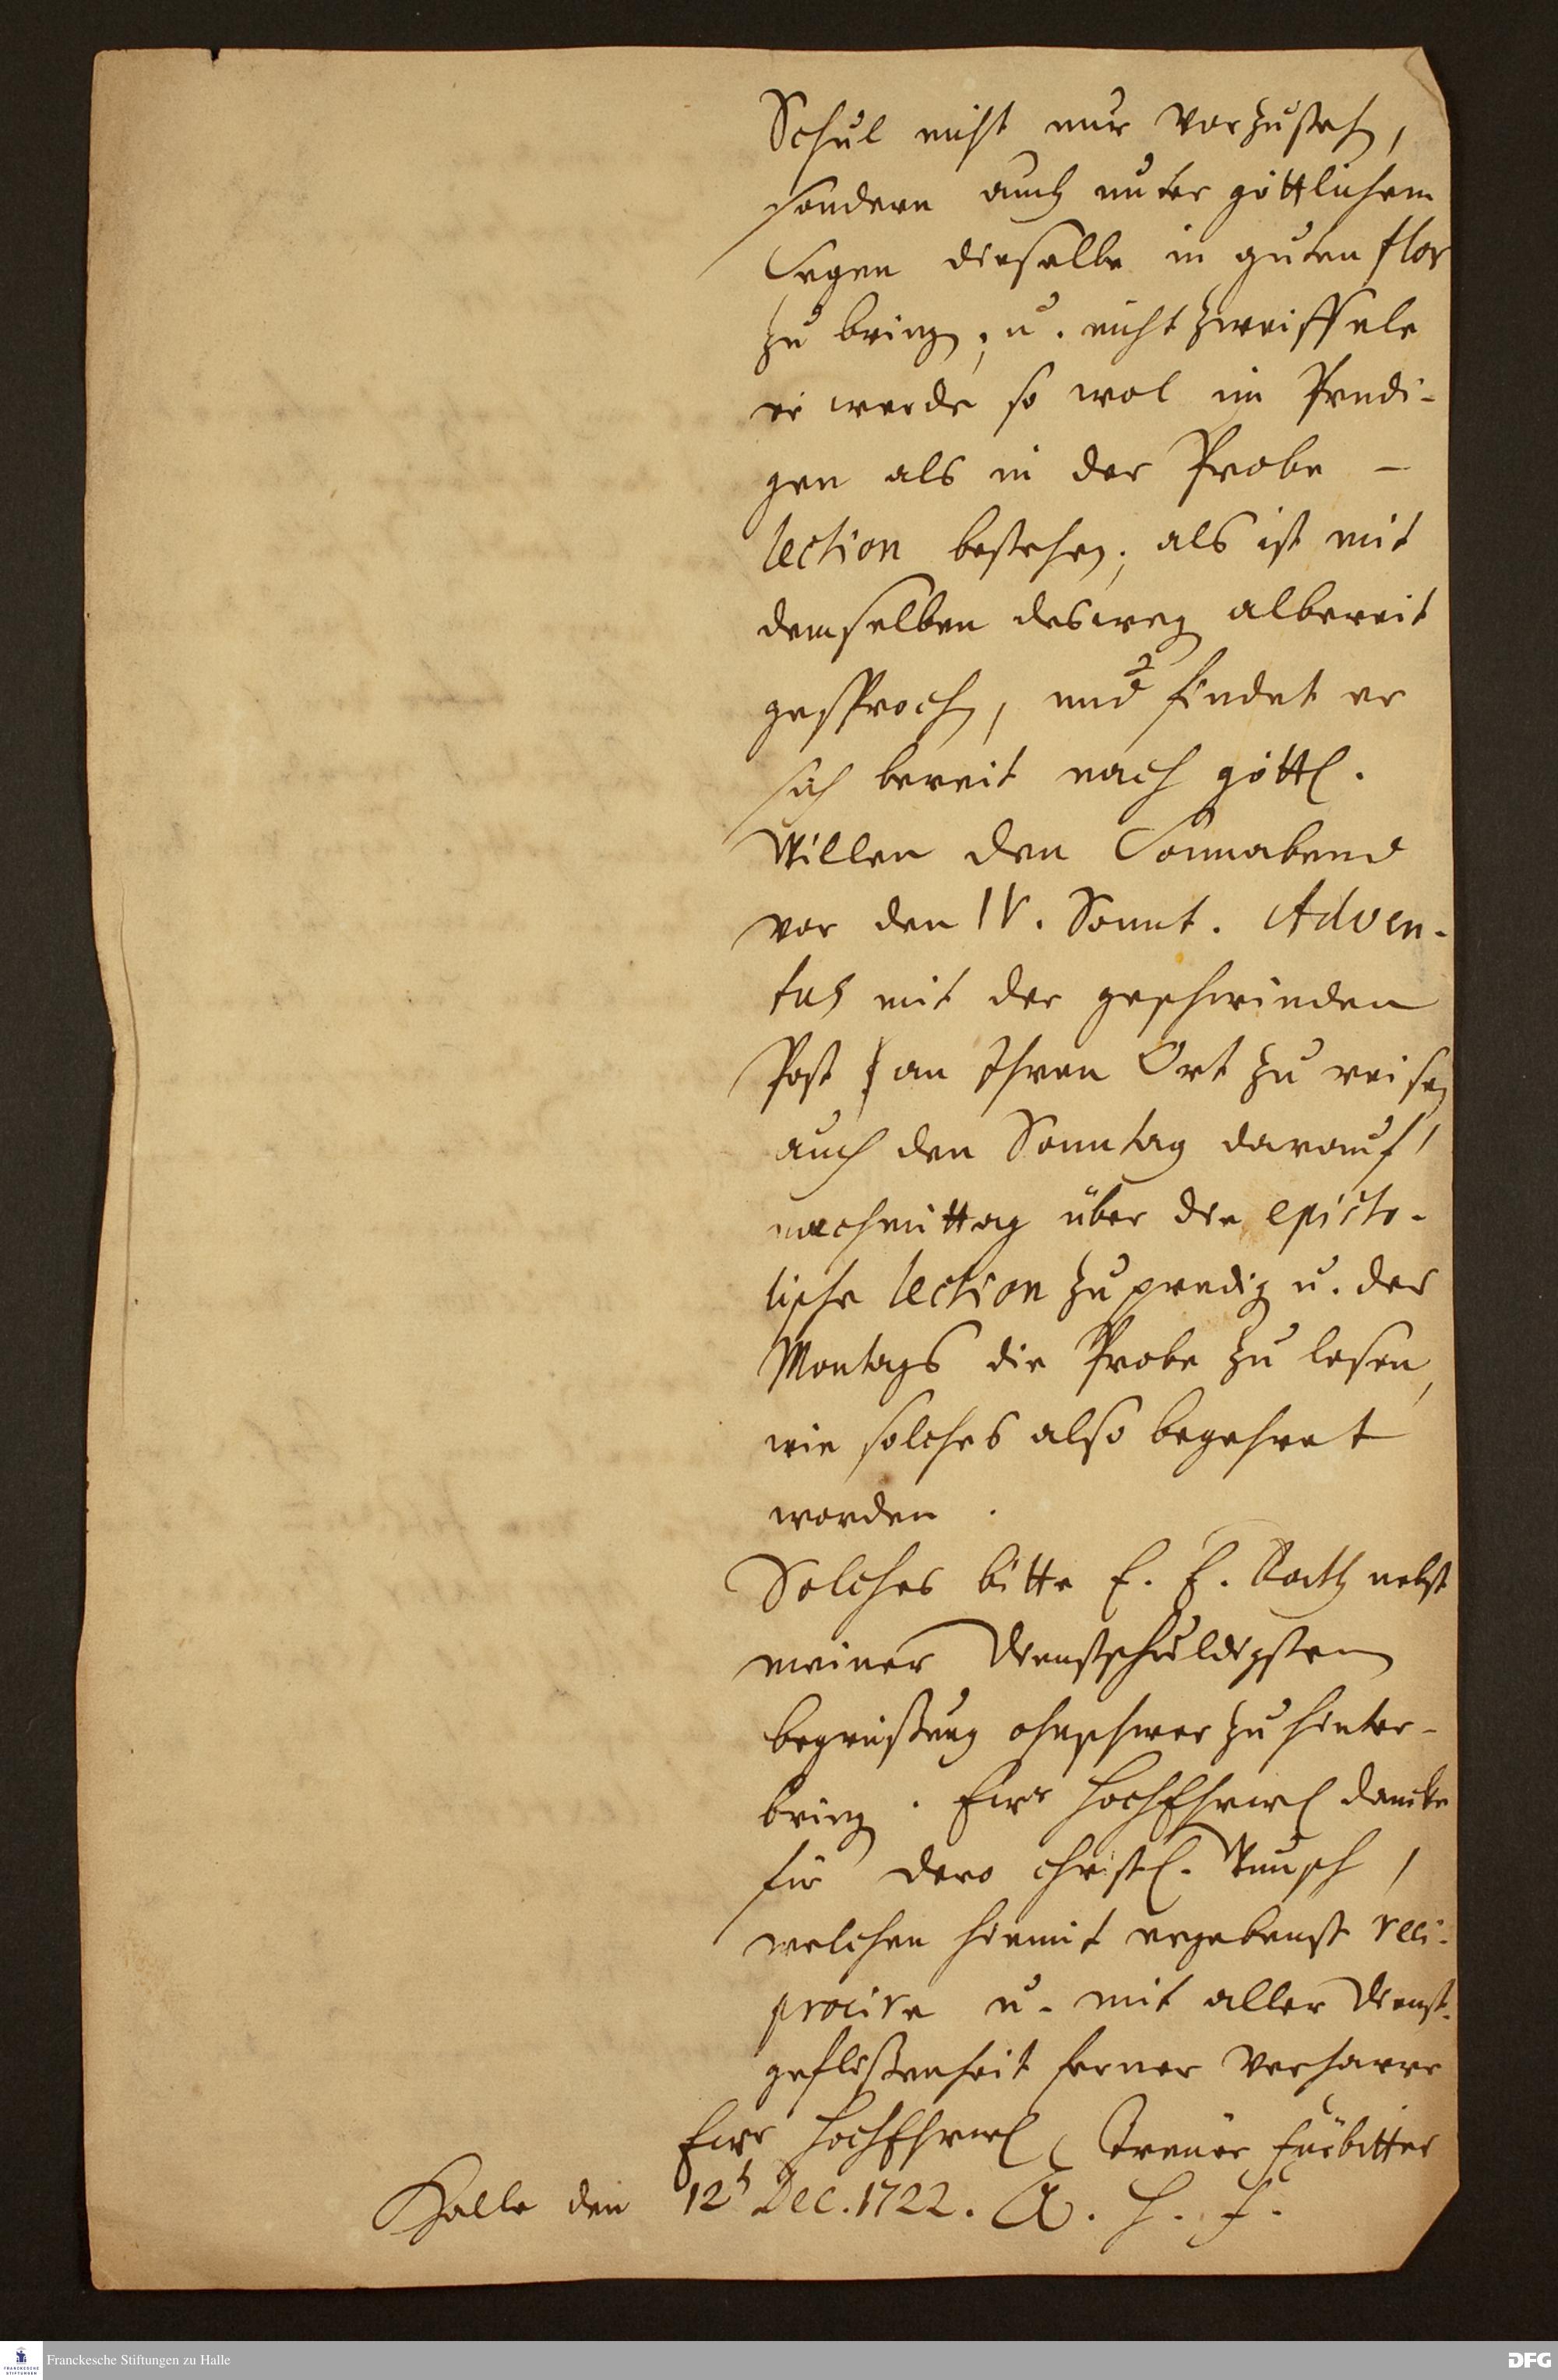 Schul nicht nur vorzustehen,
sondern auch unter göttlichem
Segen dieselbe in guten flor
zu bringen, u. nicht zweiffele
er werde so wol im Predi-
gen als in der Probe-
lection bestehen; als ist mit
demselben deswegen albereit
gesprochen, und findet er
sich bereit nach göttl.
Willen den Sonnabend
vor den IV. Sonnt. Adven-
tus mit der geschwinden
Post an Ihren Ort zu reisen
auch den Sonntag darauf,
nachmittag über die episto-
lische lection zu predigen u. des
Montags die Probe zu lesen,
wie solches also begehret
worden.
Solches bitte E. E. Rath nebst
meiner dienstschuldigsten
begrüßung ohnschwer zu hinter-
bringen. Ewr HochEhrwl dancke
für dero christl. Wunsch,
welchen hiemit ergebenst reci-
procire u. mit aller dienst-
geflißenheit ferner verharre
Ewr HochEhrwl Treuer Fürbitter
Halle den 12t Dec. 1722. A. H. F.
Franckesche Stiftungen zu Halle
DFG